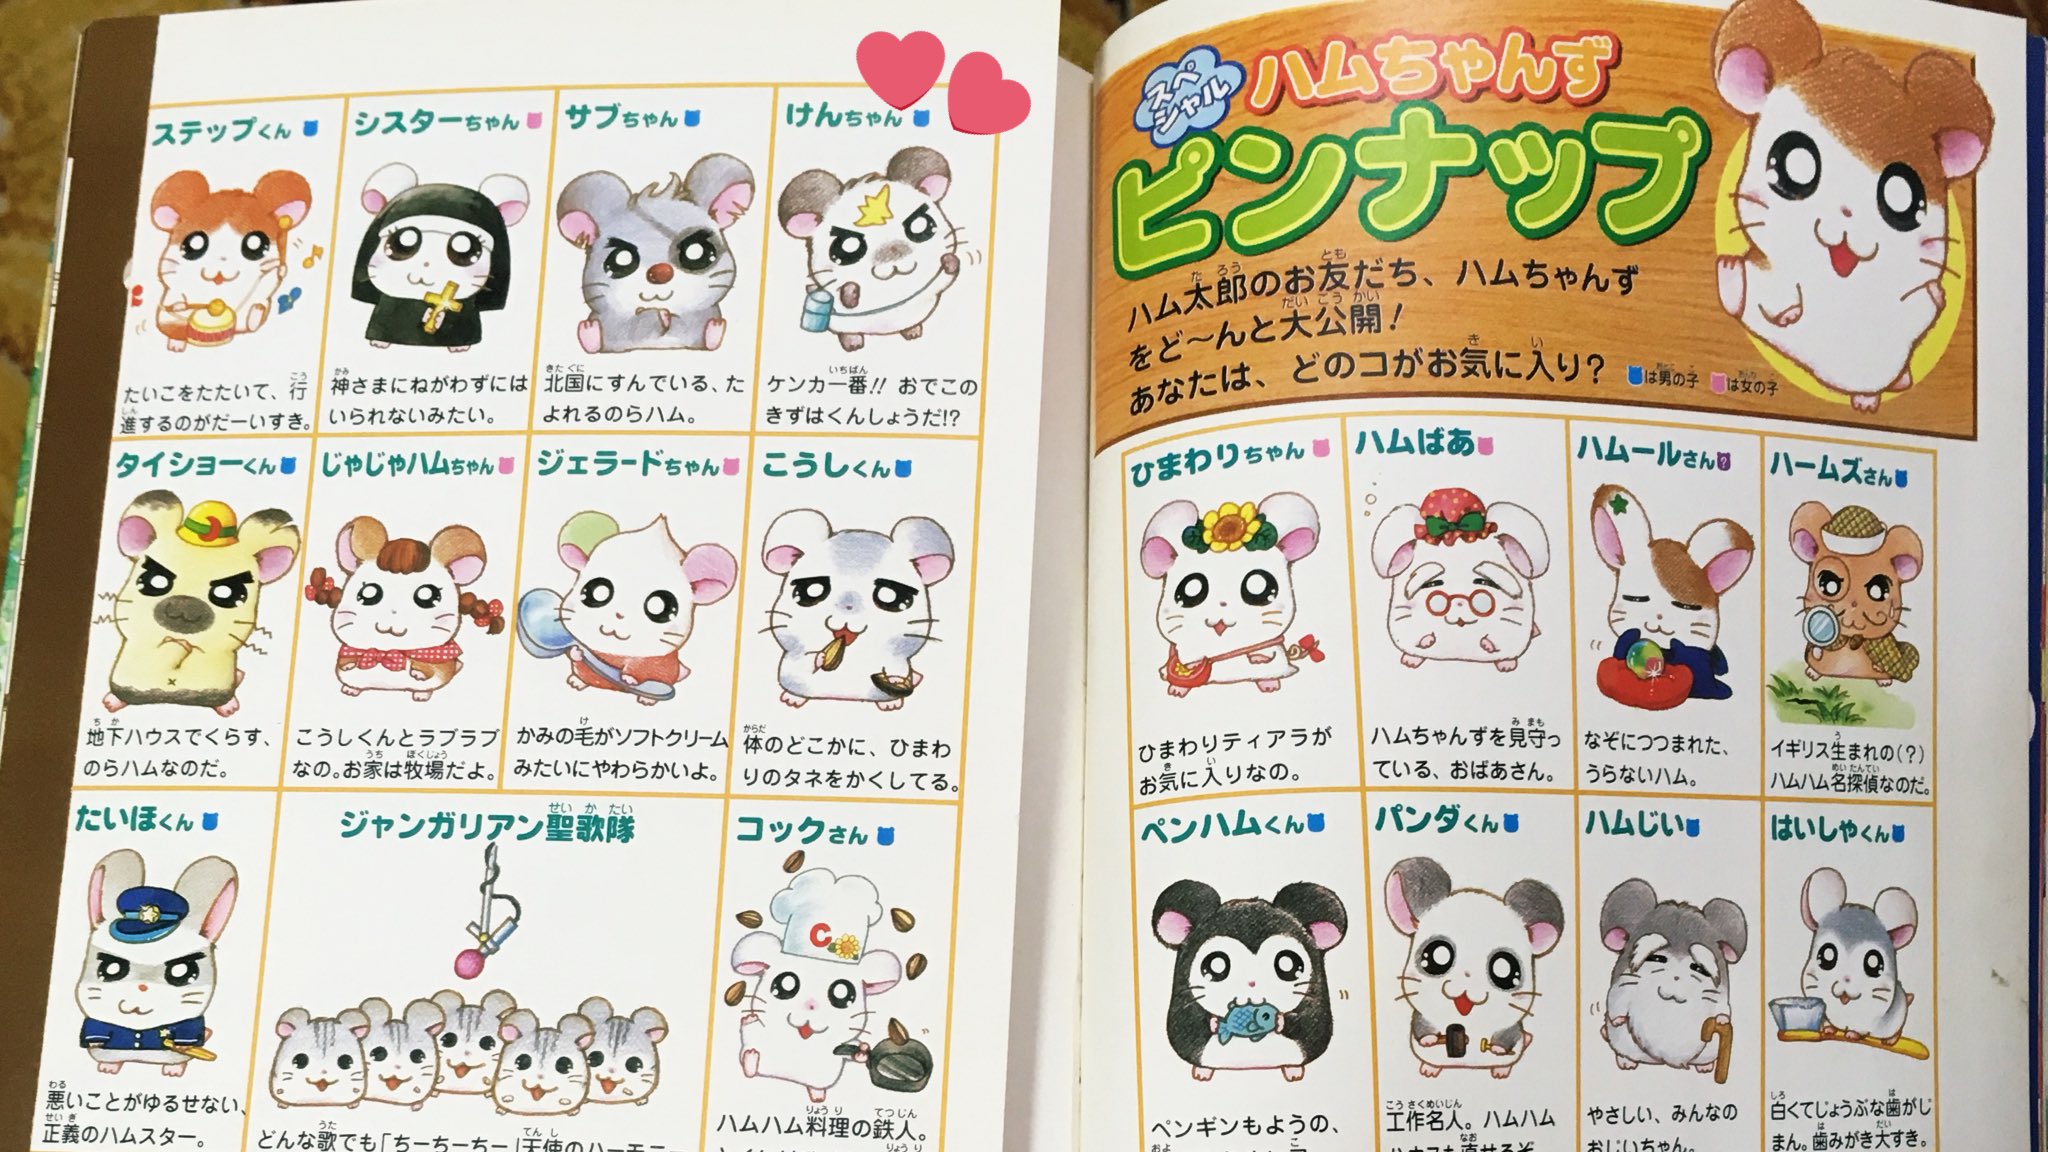 ステップくん
たいこをたたいて、行
進するのがだーいすき。
シスターちゃん
神さまにねがわずには
いられないみたい。
サブちゃん
北国にすんでいる、た
よれるのらハム。
けんちゃん
ケンカ一番!! おでこの
きずはくんしょうだ!?
タイショーくん
地下ハウスでくらす、
のらハムなのだ。
じゃじゃハムちゃん
こうしくんとラブラブ
なの。お家は牧場だよ。
ジェラードちゃん
かみの毛がソフトクリーム
みたいにやわらかいよ。
こうしくん
体のどこかに、ひまわ
りのタネをかくしてる。
たいほくん
悪いことがゆるせない、
正義のハムスター。
ジャンガリアン聖歌隊
どんな歌でも「ちーちーちー」天使のハーモニー
コックさん
C
ハムハム料理の鉄人。
スペシャル
ハムちゃんず
ピンナップ
ハム太郎のお友だち、ハムちゃんず
をど〜んと大公開!
あなたは、どのコがお気に入り?
は男の子 は女の子
ひまわりちゃん
ひまわりティアラが
お気に入りなの。
ハムばあ
ハムちゃんずを見守っ
ている、おばあさん。
ハムールさん?
なぞにつつまれた、
うらないハム。
ハームズさん
イギリス生まれの(?)
ハムハム名探偵なのだ。
ペンハムくん
ペンギンもようの、
パンダくん
工作名人。ハムハム
ハムじい
やさしい、みんなの
おじいちゃん。
はいしゃくん
白くてじょうぶな歯がじ
まん。歯みがき大すき。